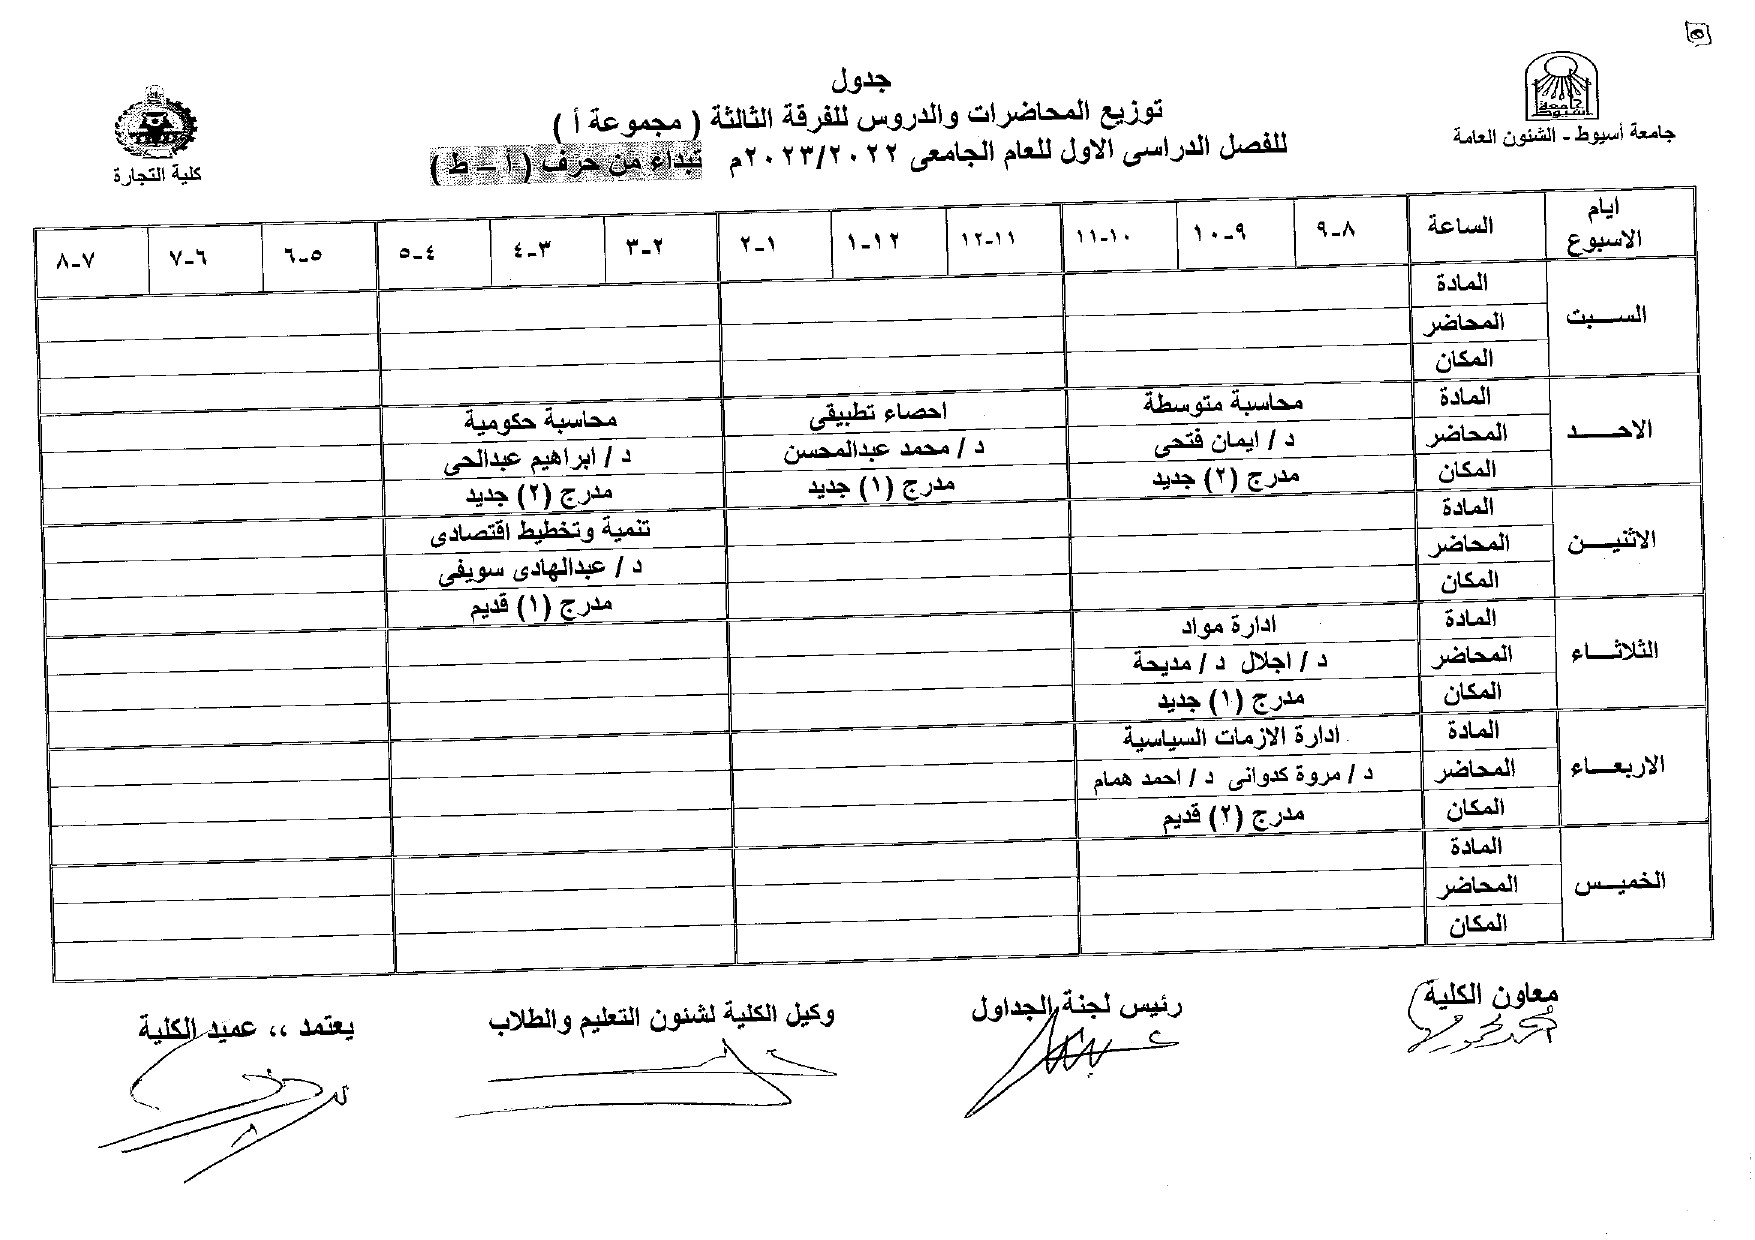 جامعة أسيوط - الشئون العامة
كلية التجارة
جدول
توزيع المحاضرات والدروس للفرقة الثالثة ( مجموعة أ )
للفصل الدراسى الاول للعام الجامعى ٢٠٢٣/٢٠٢٢م تبداء من حرف ( أ – ط )
ايام الاسبوع الساعة ٨-٩ ٩-١٠ ١٠-١١ ١١-١٢ ١٢-١ ١-٢ ٢-٣ ٣-٤ ٤-٥ ٥-٦ ٦-٧ ٧-٨
السبت
المادة
المحاضر
المكان
الاحد
المادة محاسبة متوسطة احصاء تطبيقى محاسبة حكومية
المحاضر د / ايمان فتحى د / محمد عبدالمحسن د / ابراهيم عبدالحى
المكان مدرج (٢) جديد مدرج (١) جديد مدرج (٢) جديد
الاثنيـن
المادة تنمية وتخطيط اقتصادى
المحاضر د / عبدالهادى سويفى
المكان مدرج (١) قديم
الثلاثـاء
المادة ادارة مواد
المحاضر د / اجلال د / مديحة
المكان مدرج (١) جديد
الاربعـاء
المادة ادارة الازمات السياسية
المحاضر د / مروة كدوانى د / احمد همام
المكان مدرج (٢) قديم
الخميـس
المادة
المحاضر
المكان
معاون الكلية
رئيس لجنة الجداول
وكيل الكلية لشئون التعليم والطلاب
يعتمد ،، عميد الكلية